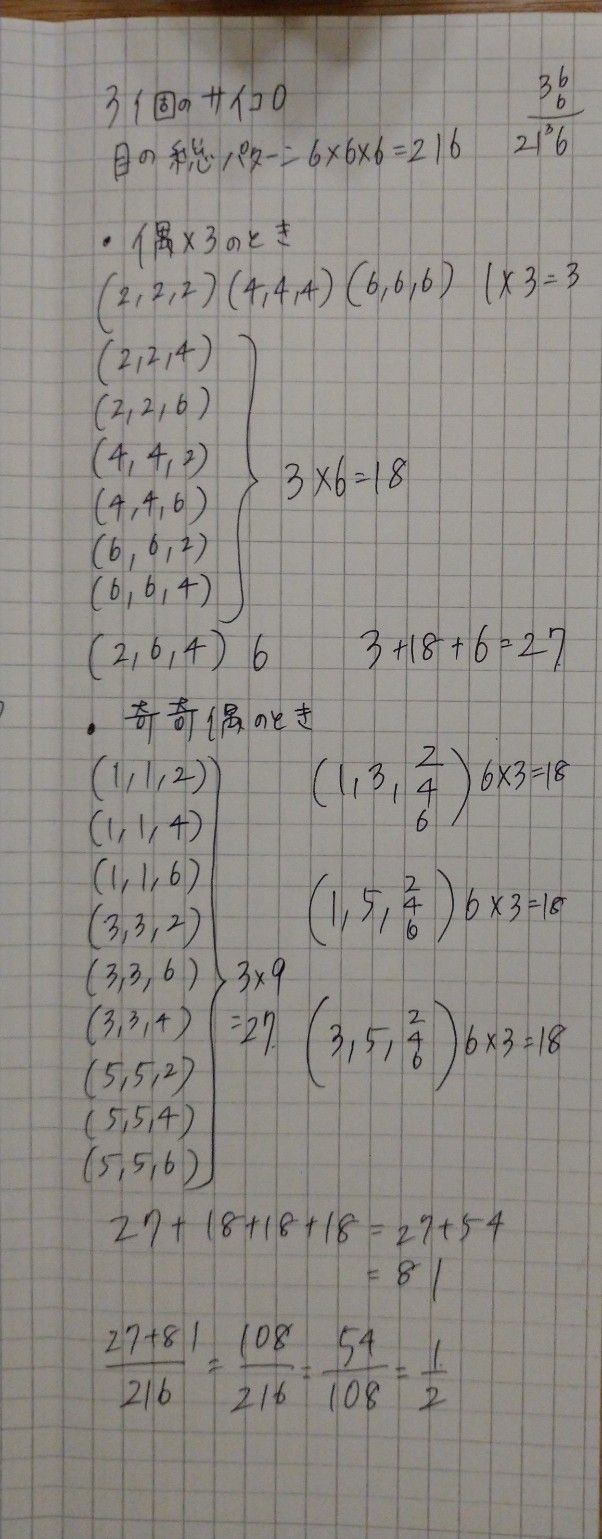 3個のサイコロ
36
6
21³6
目の総パターン 6×6×6=216
・偶×3のとき
(2,2,2)(4,4,4)(6,6,6) 1×3=3
(2,2,4)
(2,2,6)
(4,4,2)
(4,4,6)
(6,6,2)
(6,6,4)
3×6=18
(2,6,4) 6 3+18+6=27
・奇奇偶のとき
(1,1,2)
(1,1,4)
(1,1,6)
(3,3,2)
(3,3,6)
(3,3,4)
(5,5,2)
(5,5,4)
(5,5,6)
3×9
=27
(1,3,2 4 6) 6×3=18
(1,5,2 4 6) 6×3=18
(3,5,2 4 6) 6×3=18
27+18+18+18=27+54
=81
27+81/216=108/216=54/108=1/2